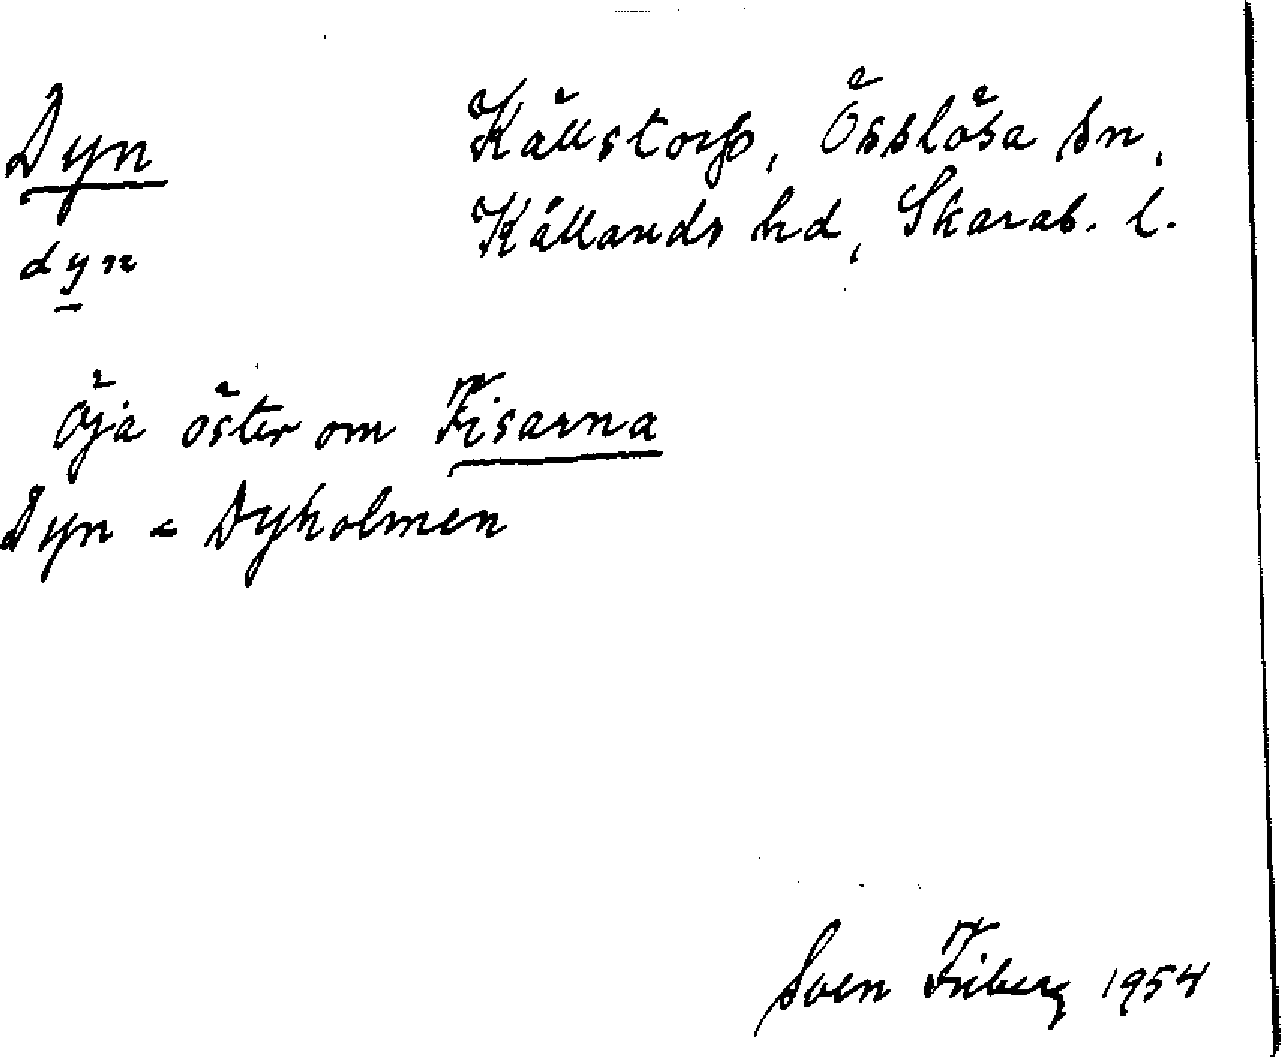 Dyn
dyn
Källstorp, Össlösa sn,
Kållands hd, Skarab. l.
Öja öster om Fisarna
Dyn = Dyholmen
Sven Friberg 1954